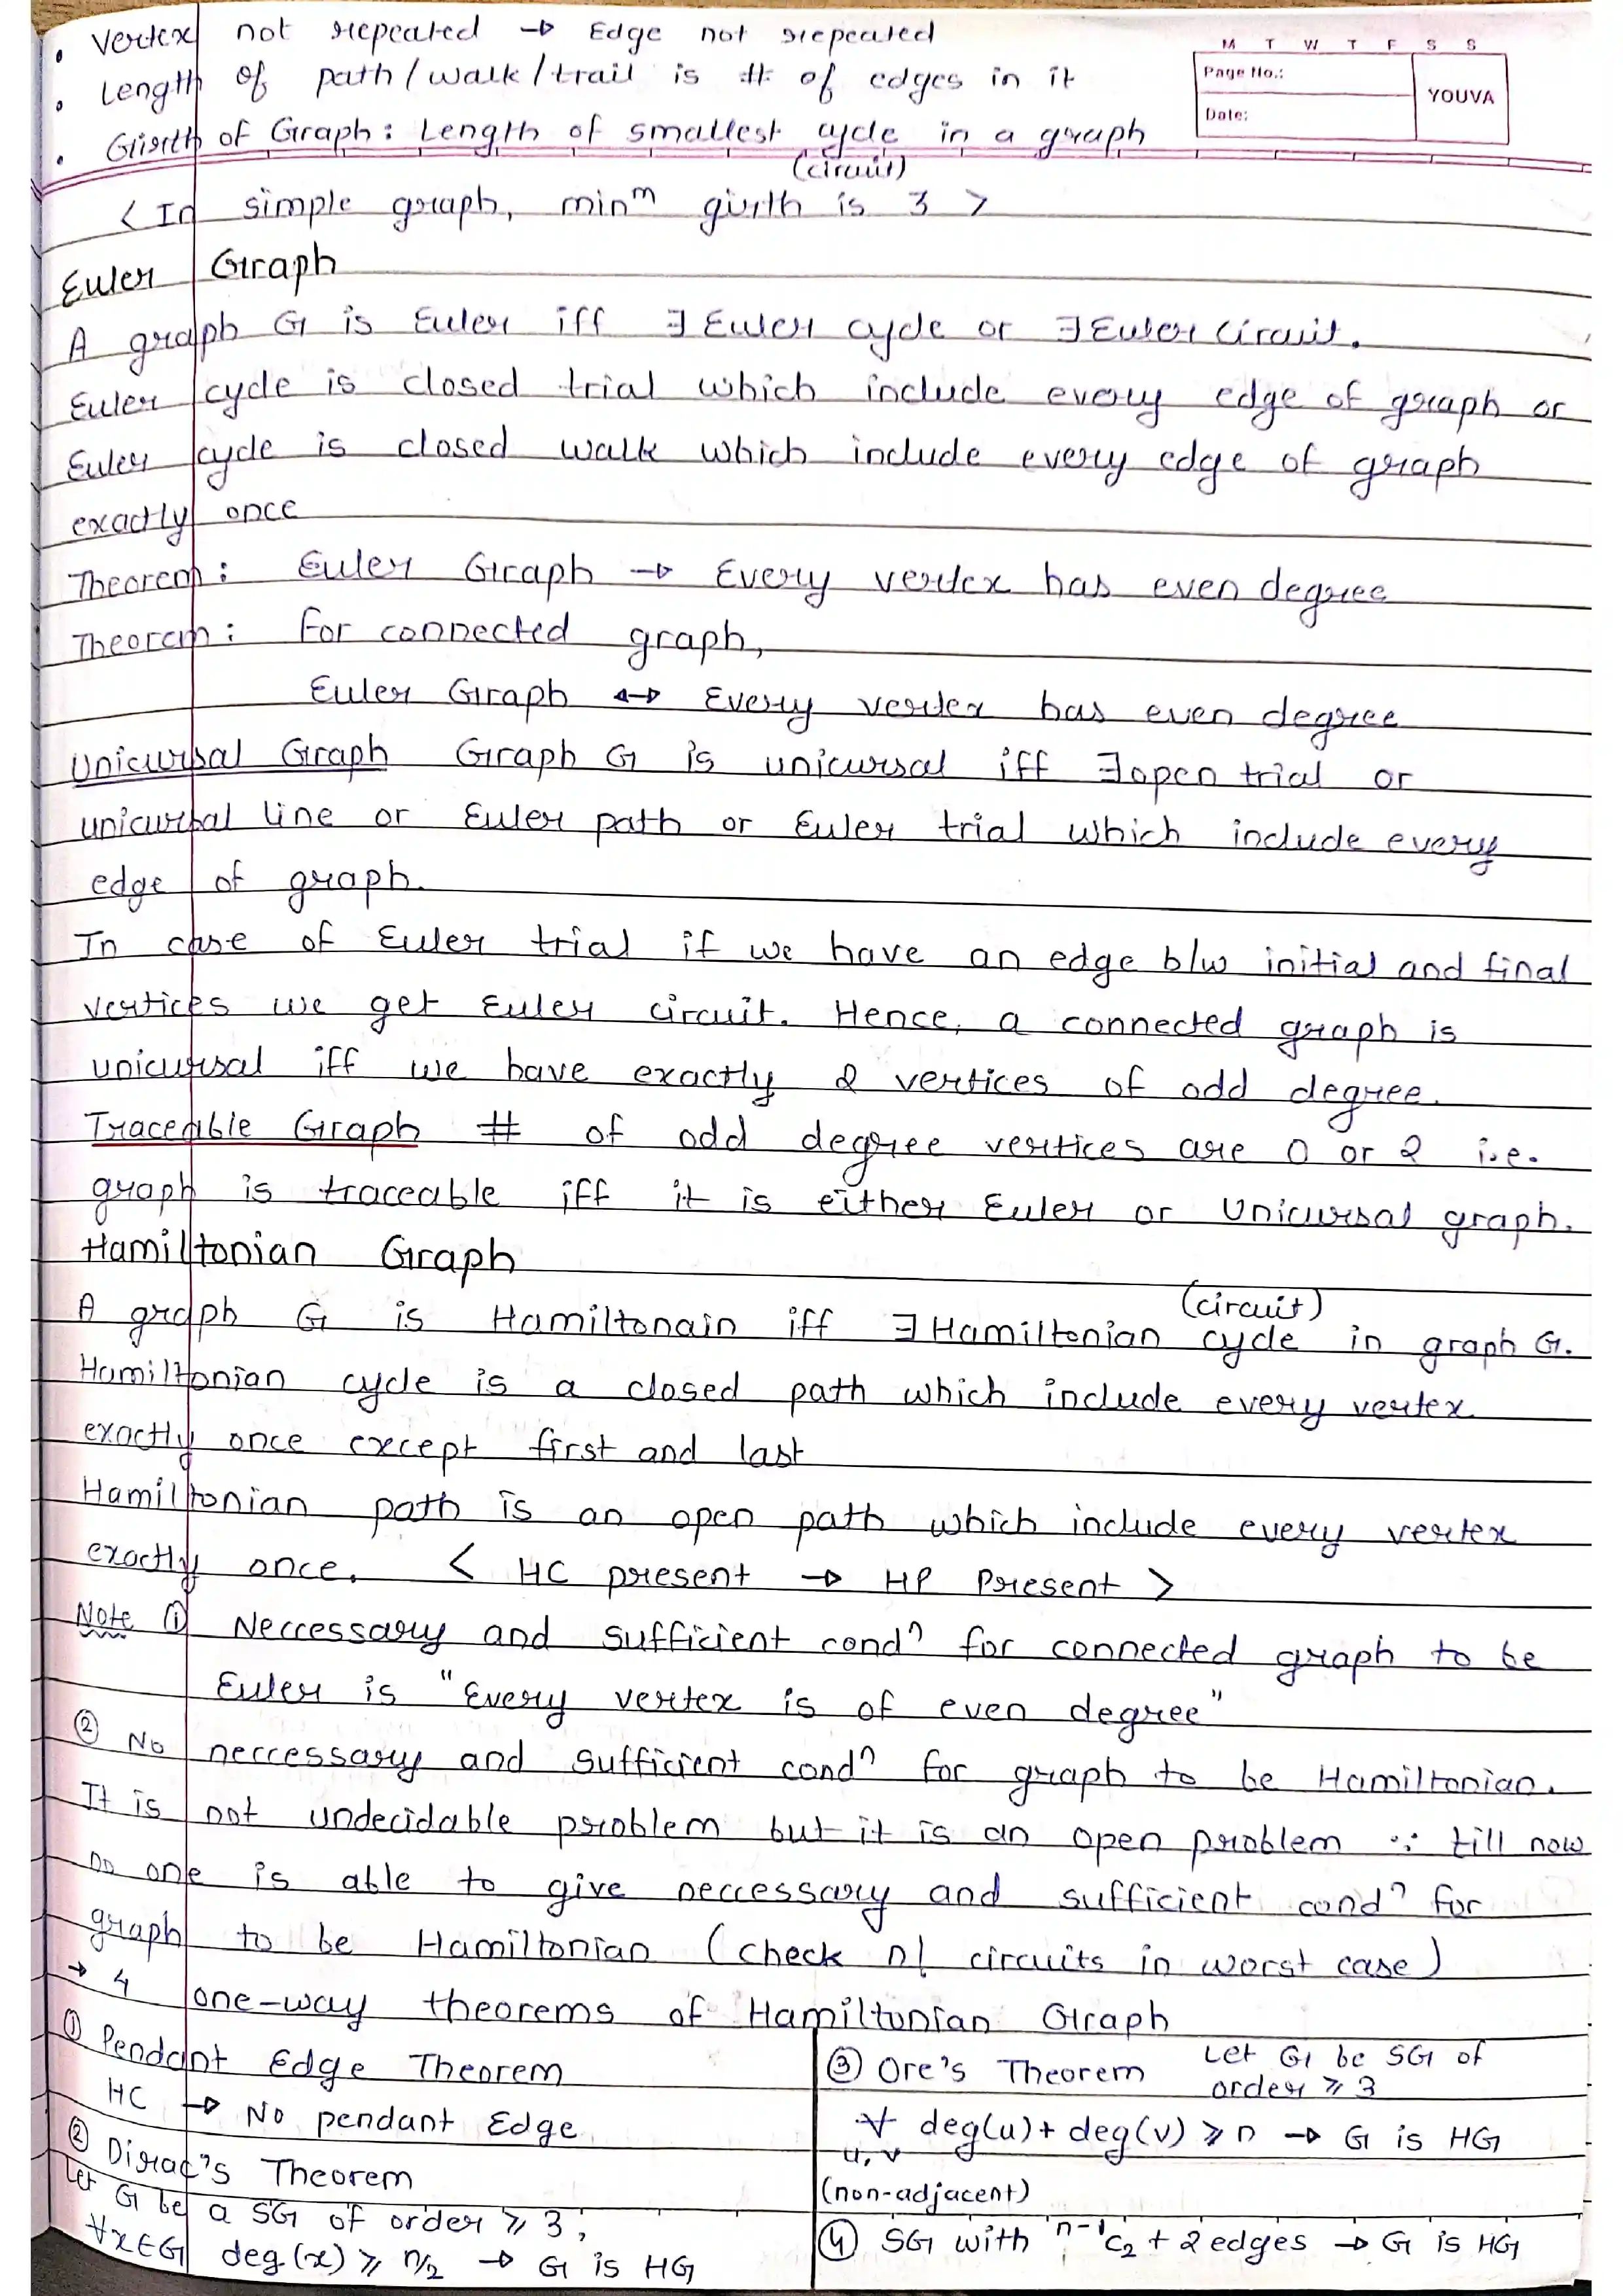 • Vertex not repeated → Edge not repeated
• Length of path/walk/trail is # of edges in it
• Girth of Graph: Length of smallest cycle in a graph
(circuit)
M T W T F S S
Page No.:
Date:
YOUVA
< In simple graph, minᵐ girth is 3 >
Euler Graph
A graph G is Euler iff ∃ Euler cycle or ∃ Euler circuit.
Euler cycle is closed trial which include every edge of graph or
Euler cycle is closed walk which include every edge of graph
exactly once
Theorem: Euler Graph → Every vertex has even degree
Theorem: For connected graph,
Euler Graph ↔ Every vertex has even degree
Unicursal Graph Graph G is unicursal iff ∃ open trial or
unicursal line or Euler path or Euler trial which include every
edge of graph.
In case of Euler trial if we have an edge b/w initial and final
vertices we get Euler circuit. Hence, a connected graph is
unicursal iff we have exactly 2 vertices of odd degree.
Traceable Graph # of odd degree vertices are 0 or 2 i.e.
graph is traceable iff it is either Euler or Unicursal graph.
Hamiltonian Graph
(circuit)
A graph G is Hamiltonain iff ∃ Hamiltonian cycle in graph G.
Hamiltonian cycle is a closed path which include every vertex
exactly once except first and last
Hamiltonian path is an open path which include every vertex
exactly once. < HC present → HP Present >
Note ① Neccessary and sufficient condⁿ for connected graph to be
Euler is "Every vertex is of even degree"
② No neccessary and sufficient condⁿ for graph to be Hamiltonian.
It is not undecidable problem but it is an open problem ∵ till now
no one is able to give neccessary and sufficient condⁿ for
graph to be Hamiltonian (check n! circuits in worst case)
→ 4 one-way theorems of Hamiltonian Graph
① Pendant Edge Theorem
HC → No pendant Edge
② Dirac's Theorem
Let G be a SG of order ≥ 3,
∀x∈G deg(x) ≥ n/2 → G is HG
③ Ore's Theorem Let G be SG of
order ≥ 3
∀ deg(u) + deg(v) ≥ n → G is HG
u, v
(non-adjacent)
④ SG with ⁿ⁻¹C₂ + 2 edges → G is HG